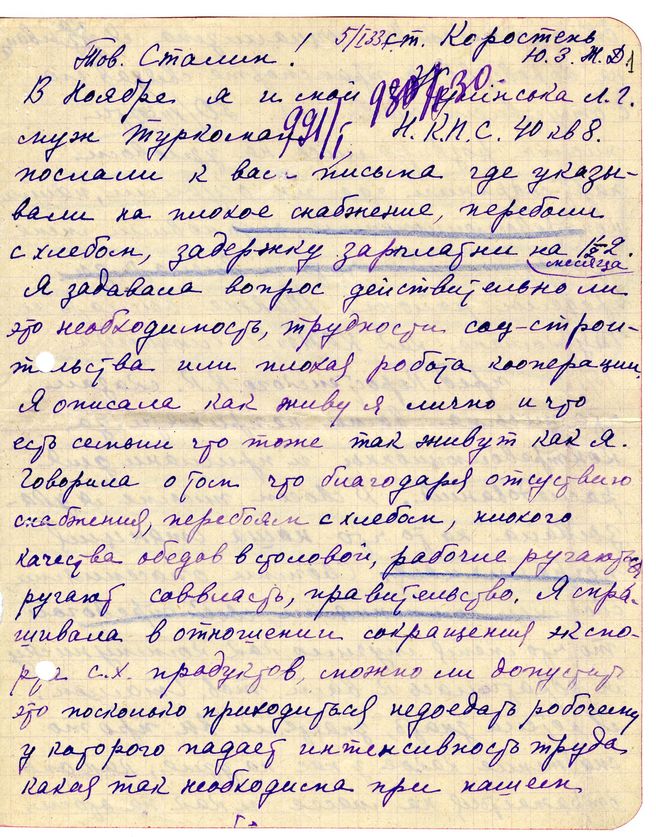 5/I 33 г. ст. Коростень
Тов. Сталин! Ю.З.Ж.Д. 1
В Ноябре я и мой Л.Г.
муж Туркоман 991/I Н.К.П.С. 40 кв 8.
послали к вам письма где указы-
вали на плохое снабжение, перебои
с хлебом, задержку зарплатни на 1½-2.
месяца
Я задавала вопрос действительно ли
это необходимость, трудности соц-строи-
тельства или плохая робота кооперации.
Я описала как живу я лично и что
есть семьи что тоже так живут как я.
Говорила о том что благодаря отсуствию
снабжения, перебоям с хлебом, низкого
качества обедов в столовой, рабочие ругаються
ругают соввласть, правительство. Я спра-
шивала в отношении сокращения экспо-
рта с.х. продуктов, можно ли допустить
это посколько приходиться недоедать робочему
у которого падает интенсивность труда
какая так необходима при нашем